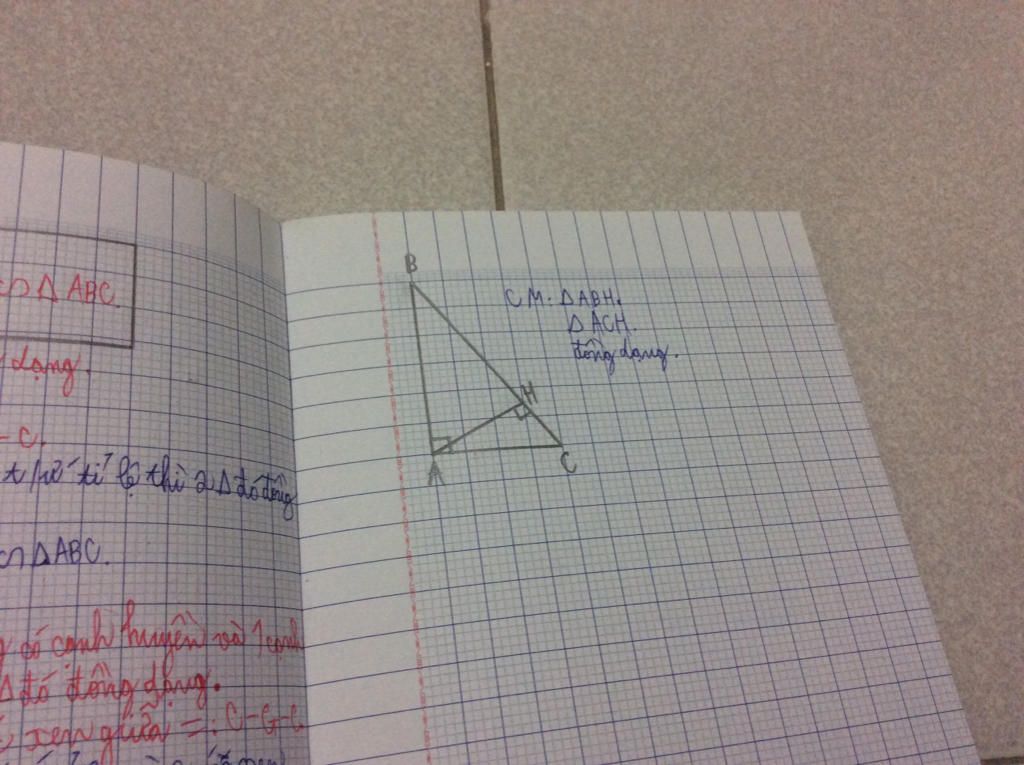 ∽ Δ ABC.
dạng.
- C.
tỉ lệ thì 2 Δ đó đồng
∽ ΔABC.
có cạnh huyền và 1 cạnh
Δ đó đồng dạng.
xen giữa = : C-G-C
B
CM. ΔABH.
ΔACH.
đồng dạng.
H
A
C